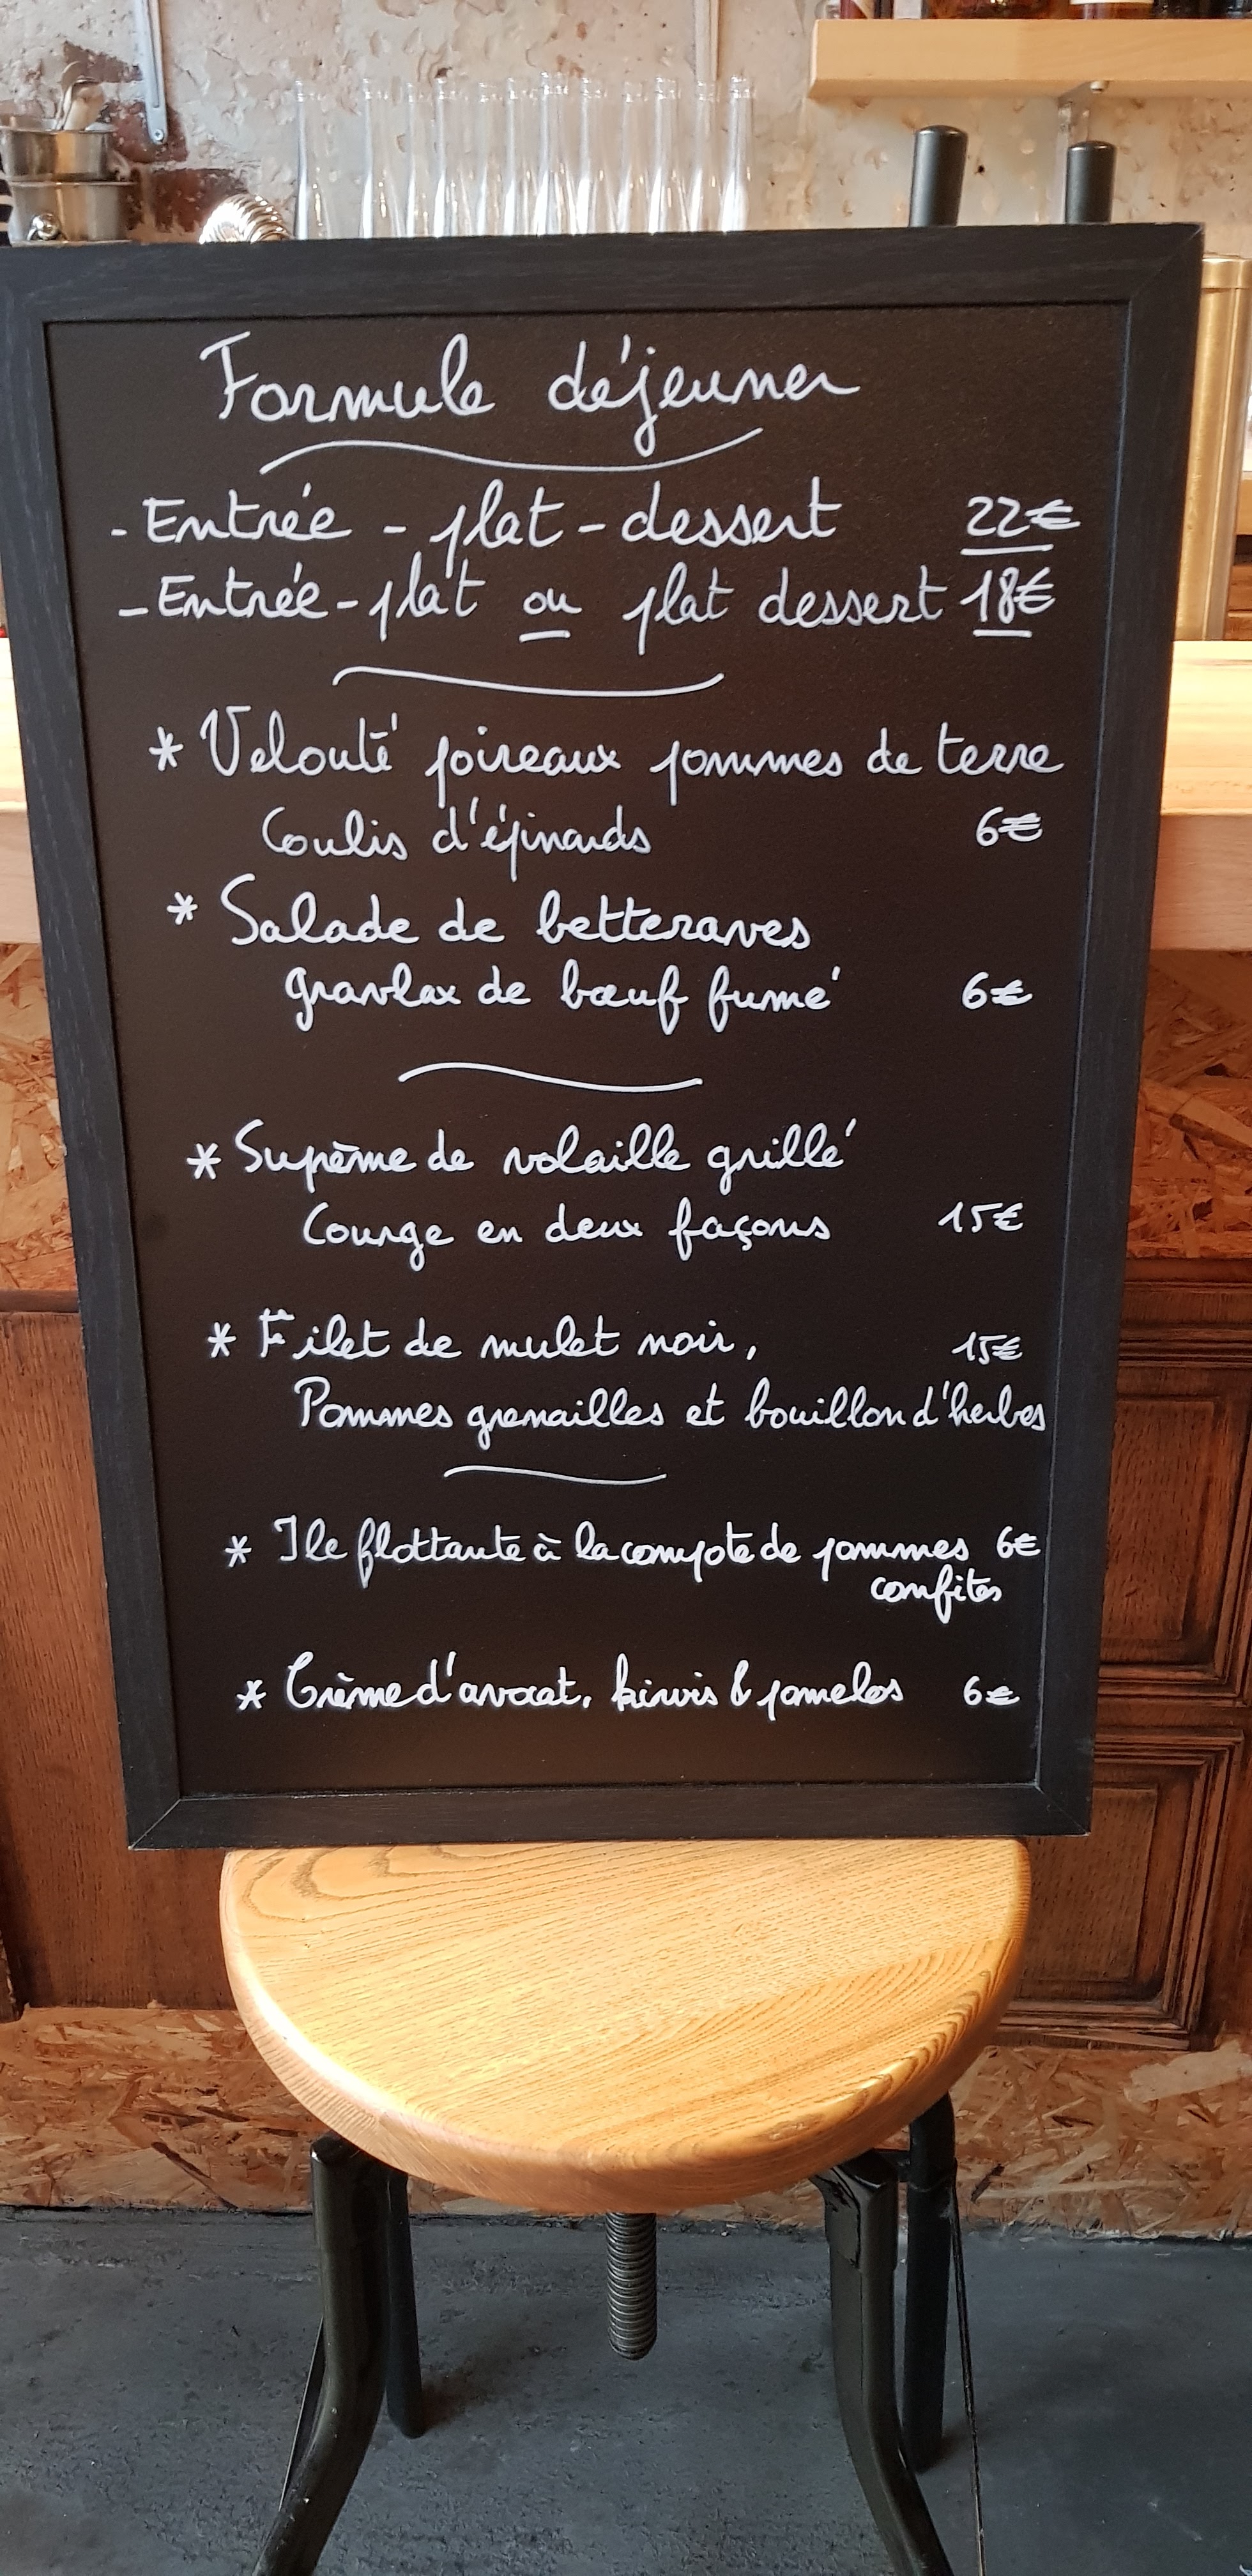 Formule déjeuner
- Entrée - plat - dessert 22€
- Entrée - plat ou plat dessert 18€
* Velouté poireaux pommes de terre
Coulis d'épinards 6€
* Salade de betteraves
gravlax de bœuf fumé 6€
* Suprème de volaille grillé
Courge en deux façons 15€
* Filet de mulet noir, 15€
Pommes grenailles et bouillon d'herbes
* Ile flottante à la compote de pommes 6€
confites
* Crème d'avocat, kiwis & pomelos 6€